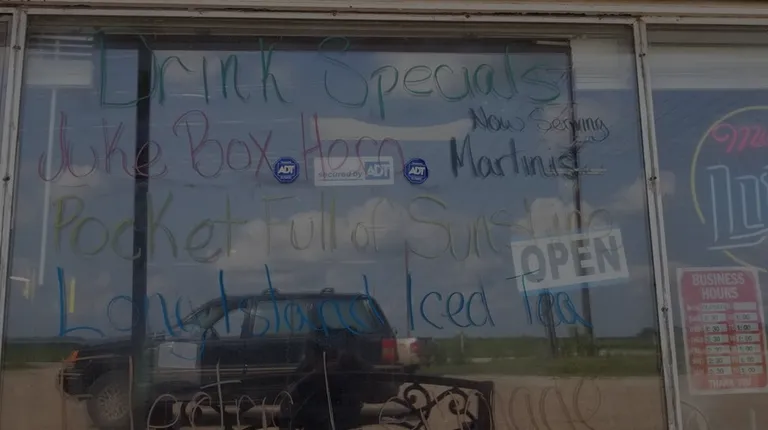 Drink Specials
Juke Box Horn
Now Serving
Martinis
ADT
secured by ADT
ADT
Pocket Full of Sunshine
OPEN
Long Island Iced Tea
BUSINESS
HOURS
THANK YOU